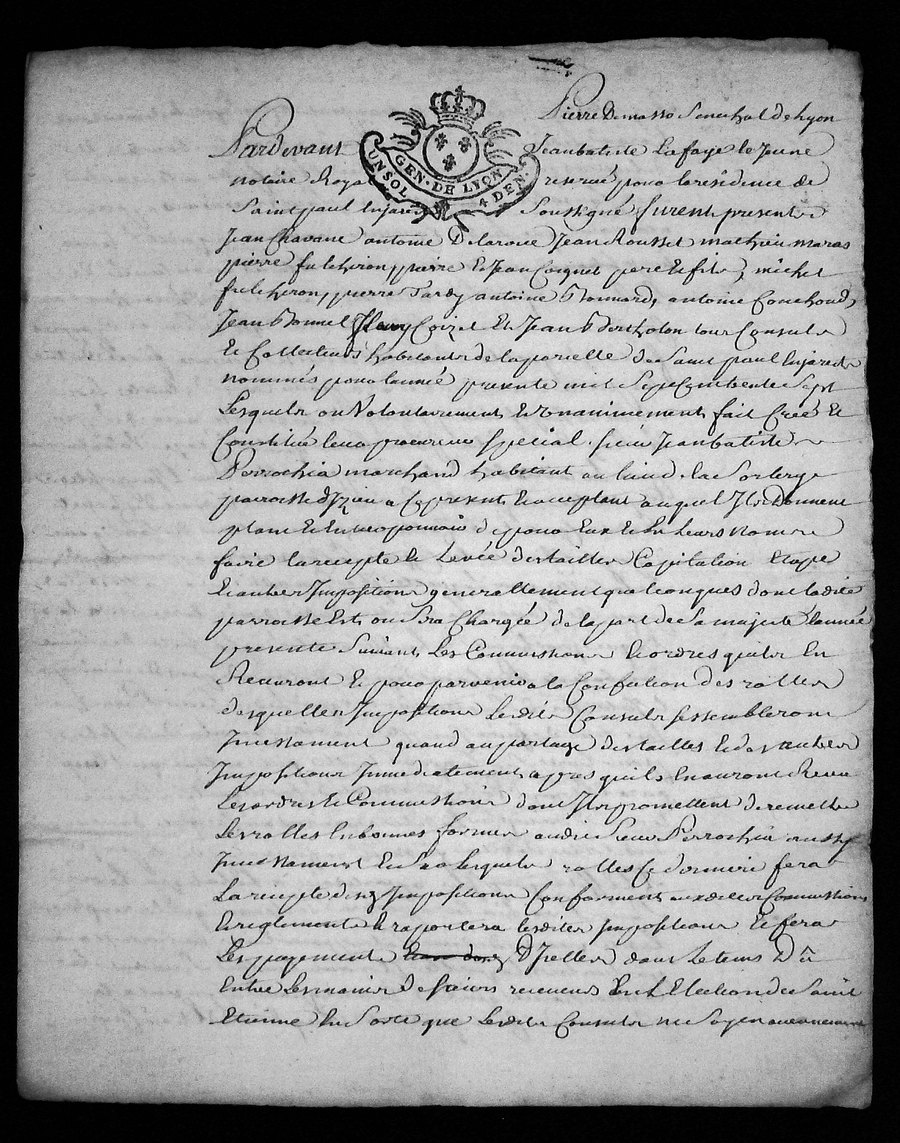 Pierre Demasso Senechal de Lyon
Pardevant Jeanbatiste Lafaye le Jeune
GEN. DE LYON
UN SOL 4 DEN.
notaire Roya reservé pour la residence de
Saint paul Enjarest Soussigné furent presents
Jean Chavane antoine Delaroue Jean Rousset mathieu maras
pierre fulchiron pierre & Jean Coignet pere & fils michel
fulchiron pierre Tardy antoine Bonnard antoine Couchoud
Jean Bonnet fleury Coizet Et Jean Bertholon tous Consuls
Et Collecteurs habitants de laparoisse de Saint paul Enjarest
nommés pour lannée presente mil Sept Cent trente Sept
Lesquels on Volontairement & Unanimement fait Créé Et
Constitué leur procureur special sieur Jeanbatiste
Perrochia marchand habitant au lieu de la Sorlerye
parroisse d'Izieu a Ce present & acceptant auquel Ils donnent
plain & Entier pouvoir de pour Eux & En Leurs Noms
faire larecepte & Levée destailles Capitation Etape
Et autres Impositions generallement quelconques dont ladite
parroisse Est ou Sera Chargée de la part de Sa majesté lannée
presente Suivant Les Commissions & ordres quils En
Recevront Et pour parvenir a la Confection des rolles
desquelles Impositions Lesdits Consuls sessembleront
Incessament quand au partage destailles & des autres
Impositions Immediatement apres quils En auront Receu
Les ordres & Commissions dont Ils promettent de remettre
Les rolles En bonnes formes audit Sieur Perrochia aussy
Incessament Et Sur Lesquels rolles Ce dernier fera
La recepte des Impositions Conforment auxdittes Commissions
& reglements & raportera lesdites Impositions & fera
Les payements D'Icelles dans le tems Dû
Entre Les mains de sieurs receveurs En L'Election de Saint
Etienne En Sorte que Lesdits Consuls ne Soyent aucunement